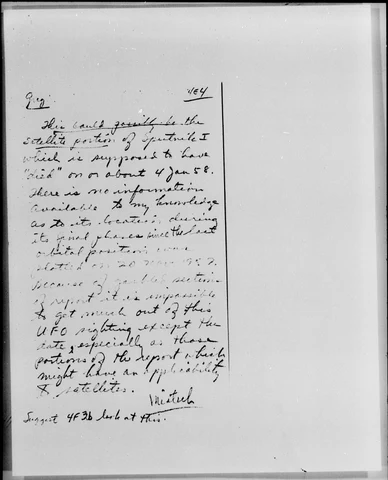 4E4
This could possibly be the
satellite portion of Sputnik I
which is supposed to have
"died" on or about 4 Jan 58.
There is no information
available to my knowledge
as to its location during
its final phases since the last
orbital position was
plotted on 20 Nov
Because of garbled section
of report it is impossible
to get much out of this
UFO sighting except the
date, especially as those
portions of the report which
might have an applicability
to satellites.
Suggest 4F3b look at this.